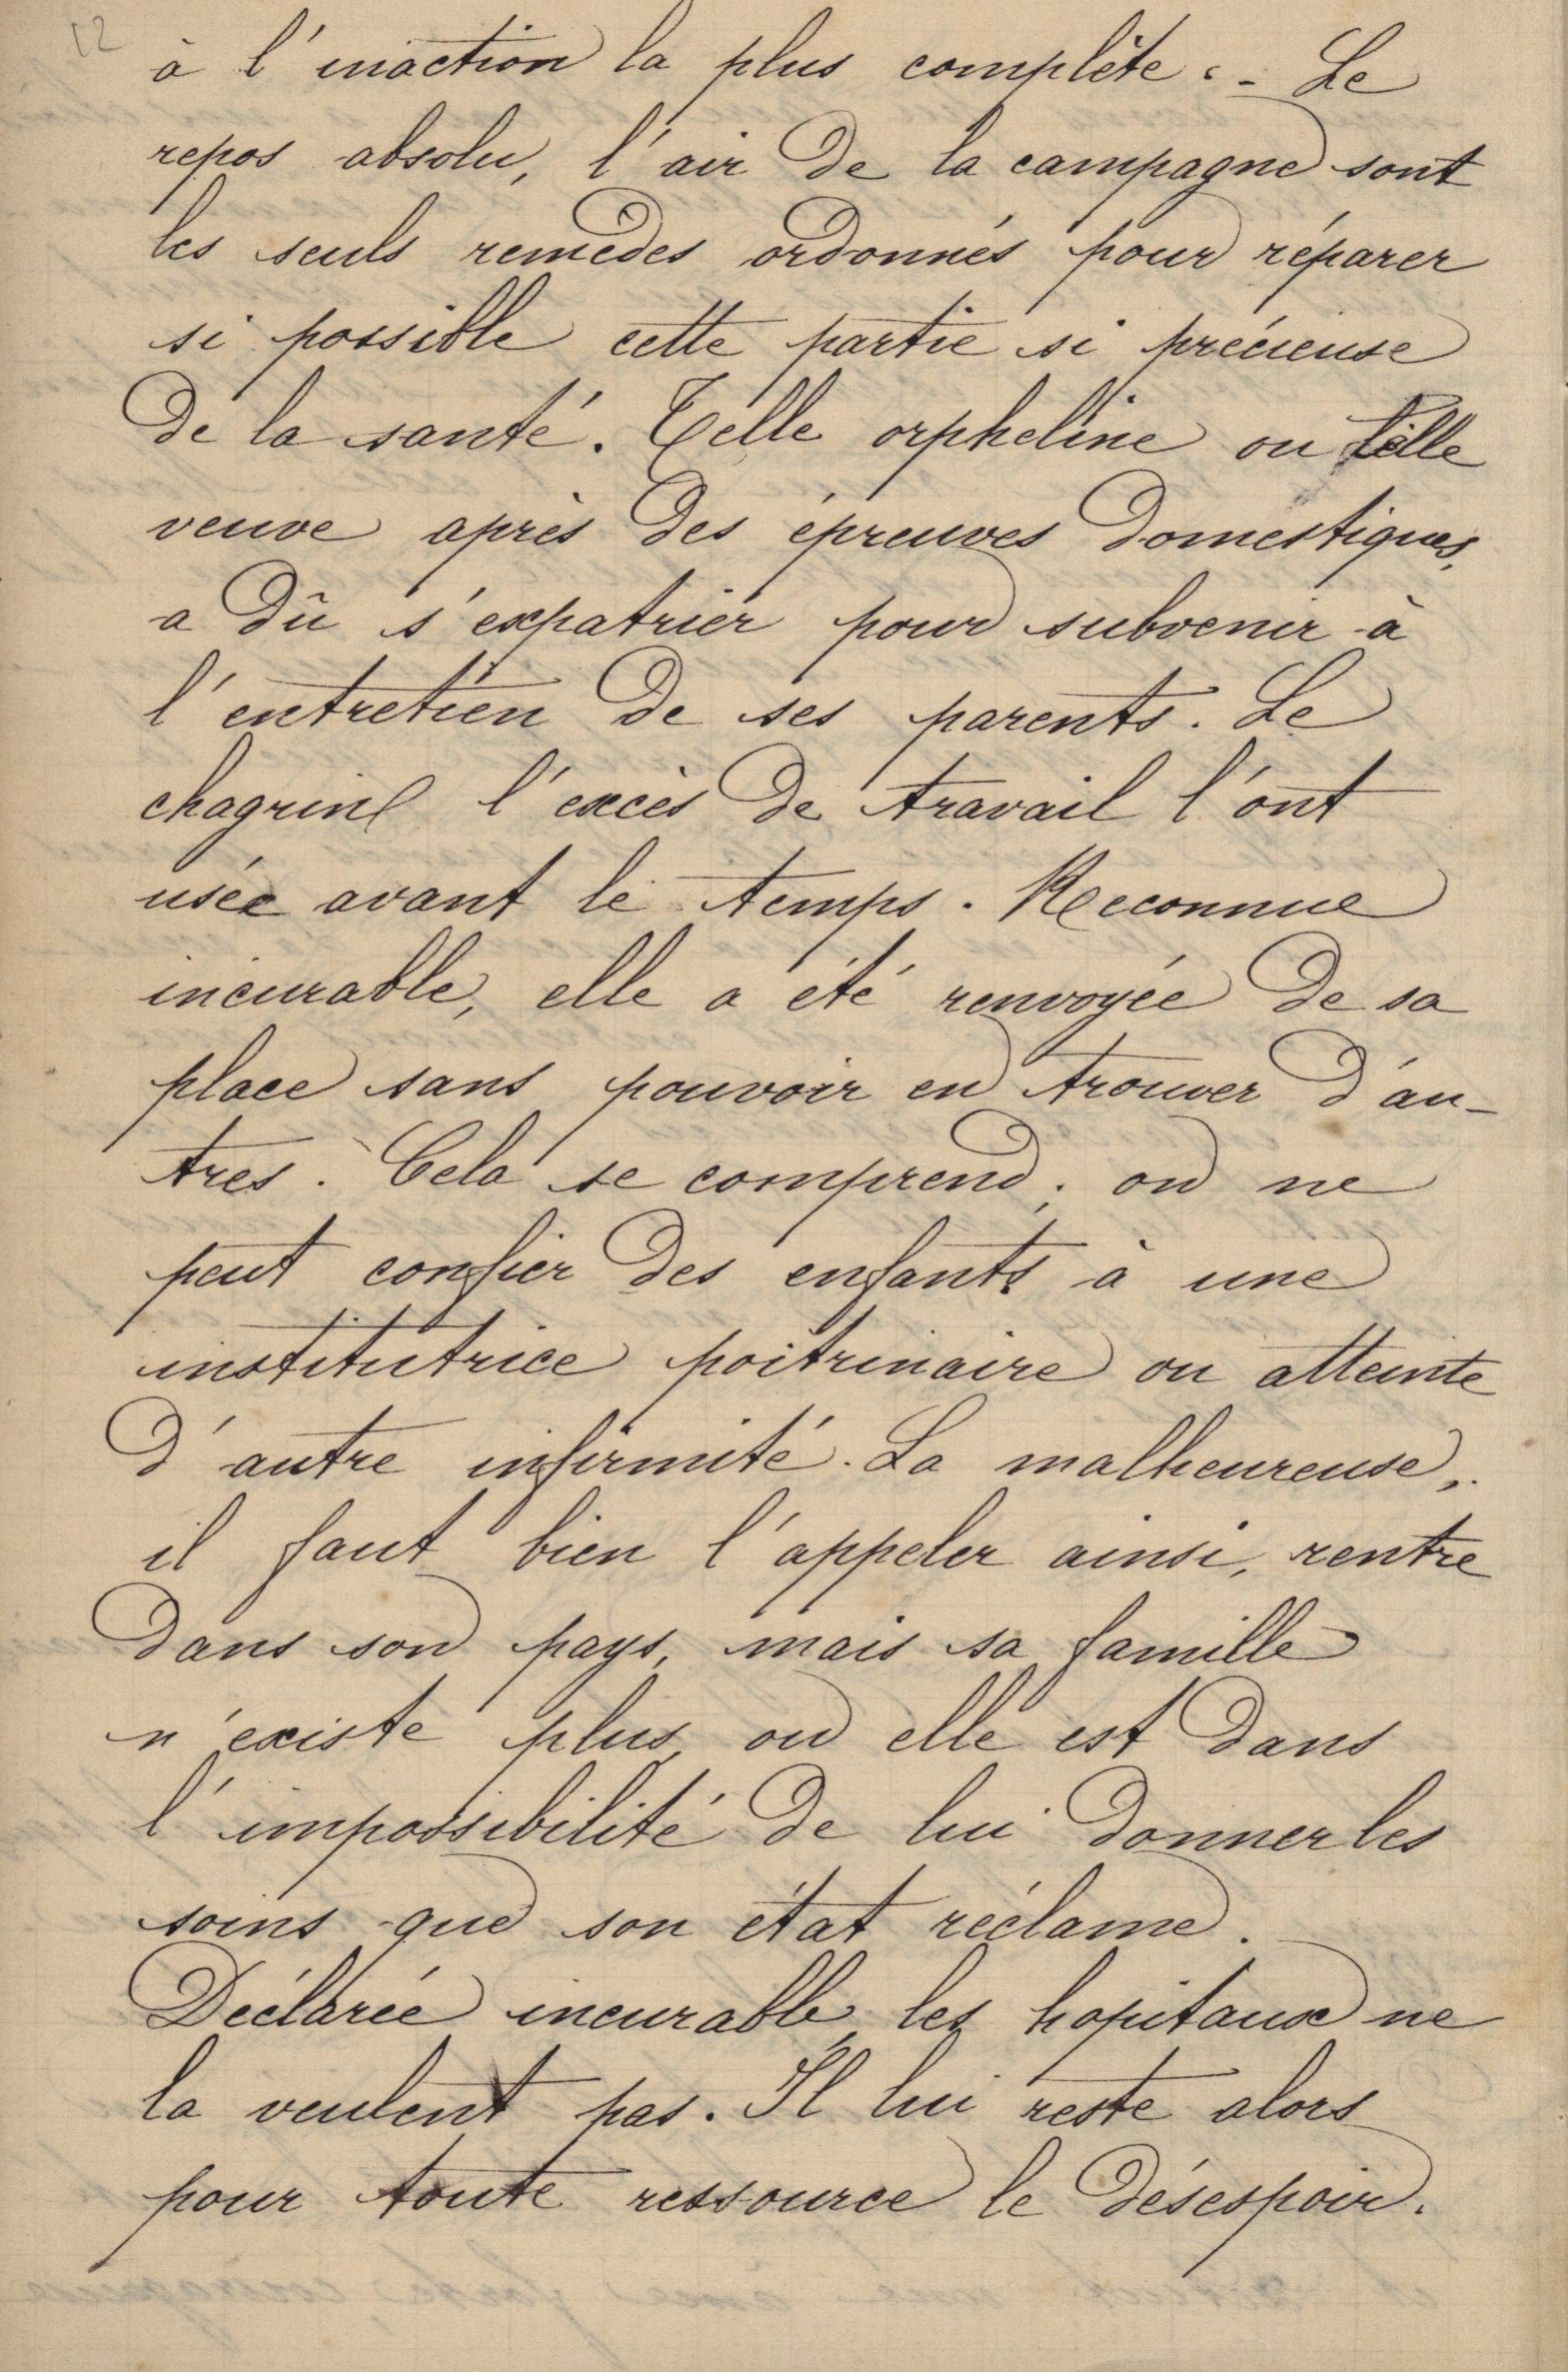 12
à l'inaction la plus complète. - Le
repos absolu, l'air de la campagne sont
les seuls remèdes ordonnés pour réparer
si possible cette partie si précieuse
de la santé. Telle orpheline ou telle
veuve après des épreuves domestiques,
a dû s'expatrier pour subvenir à
l'entretien de ses parents. Le
chagrin l'excès de travail l'ont
usée avant le temps. Reconnue
incurable, elle a été renvoyée de sa
place sans pouvoir en trouver d'au-
tres. Cela se comprend; on ne
peut confier des enfants à une
institutrice poitrinaire ou atteinte
d'autre infirmité. La malheureuse,
il faut bien l'appeler ainsi, rentre
dans son pays, mais sa famille
n'existe plus, ou elle est dans
l'impossibilité de lui donner les
soins que son état réclame.
Déclarée incurable, les hopitaux ne
la veulent pas. Il lui reste alors
pour toute ressource le désespoir.